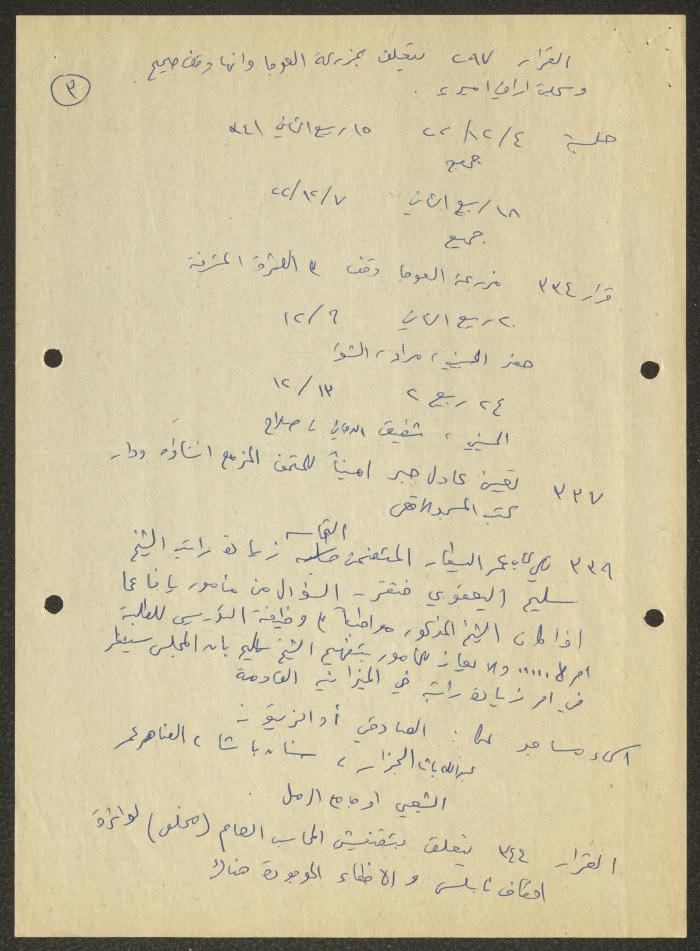 القرار ٢٩٧ يتعلق بمزرعة العوجا وانها وقف صحيح
٣
وسجلت اراضي اميرية
جلسة ٢٢/١٢/٤ ١٥ ربيع الثاني ٣٤١
جميع
١٨ ربيع الثاني ٢٢/١٢/٧
جميع
قرار ٣٣٤ مزرعة العوجا وقف الصخرة المشرفة
٢٠ ربيع الثاني ١٢/٩
حضر الحسيني، مراد، الشوا
٢٤ ربيع ٢ ١٢/١٣
الحسيني، شفيق الدجاني، صلاح
٣٣٧ تعيين عادل جبر اميناً للمتحف المزمع انشاؤه ودار
كتب المسجد الاقصى
التماسه
٣٣٩ كتاب عمر البيطار المتضمن زيادة راتب الشيخ
سليم اليعقوبي فتقرر السؤال من مأمور يافا عما
اذا كان الشيخ المذكور مواظباً في وظيفة التدريس للطلبة
ام لا ..... والايعاز للمأمور بتفهيم الشيخ سليم بان المجلس سينظر
في امر زيادة راتبه في الميزانية القادمة
اسماء مساجد عكا: الصادقي أو الزيتونة
عبدالله باشا الجزار، سنان باشا، الظاهر عمر
الشعبي او جامع الرمل
القرار ٣٤٤ يتعلق بتفتيش المحاسب العام (مخلص) لدائرة
اوقاف نابلس والاخطاء الموجودة هناك